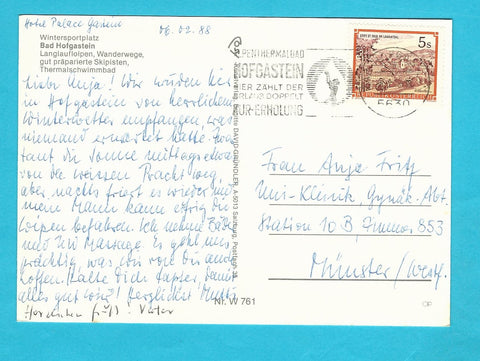 Hotel Palace Gastein
06.02.88
Wintersportplatz
Bad Hofgastein
Langlaufloipen, Wanderwege,
gut präparierte Skipisten,
Thermalschwimmbad
Liebe Anja! Wir wurden hier
in Hofgastein von herrlichem
Winterwetter empfangen, was
niemand erwartet hatte. Zwar
taut die Sonne mittags etwas
von der weissen Pracht weg,
aber nachts friert es wieder und
mein Mann kann eifrig die
Loipen befahren. Ich nehme Bäder
und Massage. Es geht uns
prächtig was wir von dir auch
hoffen. Halte dich tapfer damit
alles gut wird! Herzlichst Mutti
Herzlichen Gruß! Vater
ALPENTHERMALBAD
HOFGASTEIN
HIER ZÄHLT DER
URLAUB DOPPELT
KUR-ERHOLUNG
5630
5s
REPUBLIK ÖSTERREICH
A-5013 Salzburg, Postfach
Frau Anja Fritz
Uni-Klinik, Gynäk. Abt.
Station 10 B, Zimmer 853
Münster/Westf.
Nr. W 761